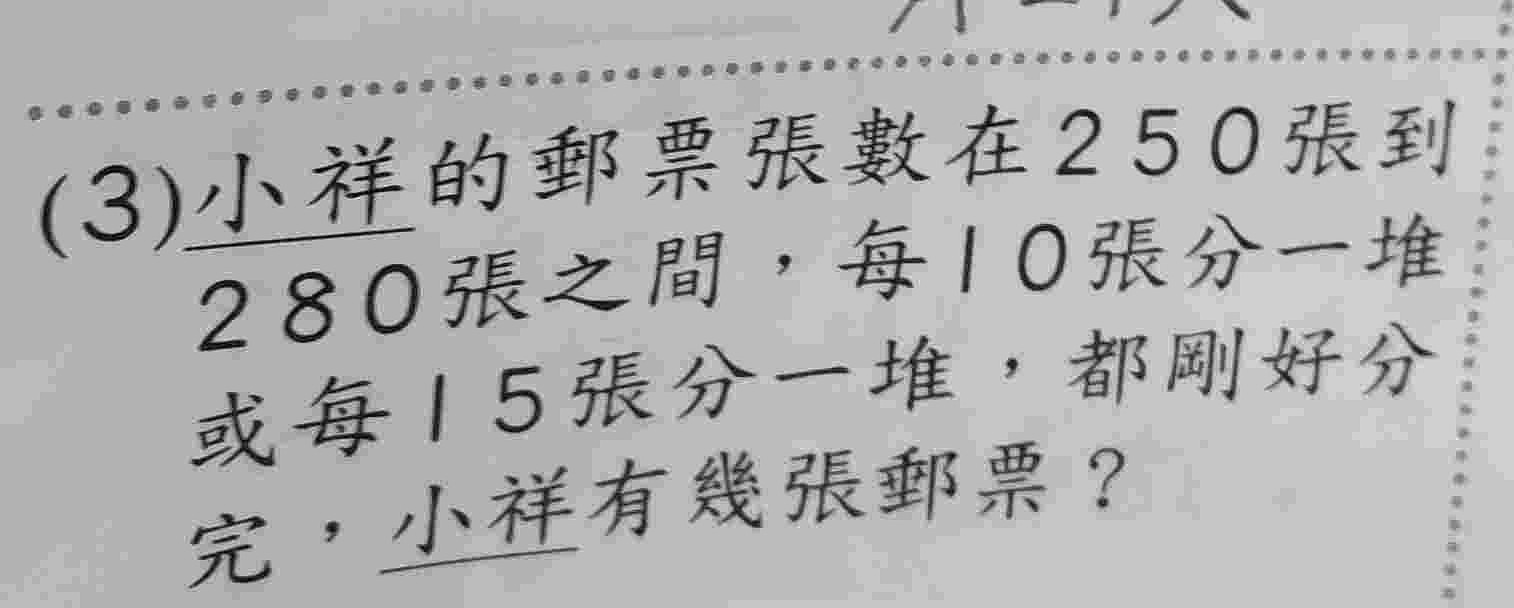 (3)小祥的郵票張數在250張到
280張之間，每10張分一堆
或每15張分一堆，都剛好分
完，小祥有幾張郵票？